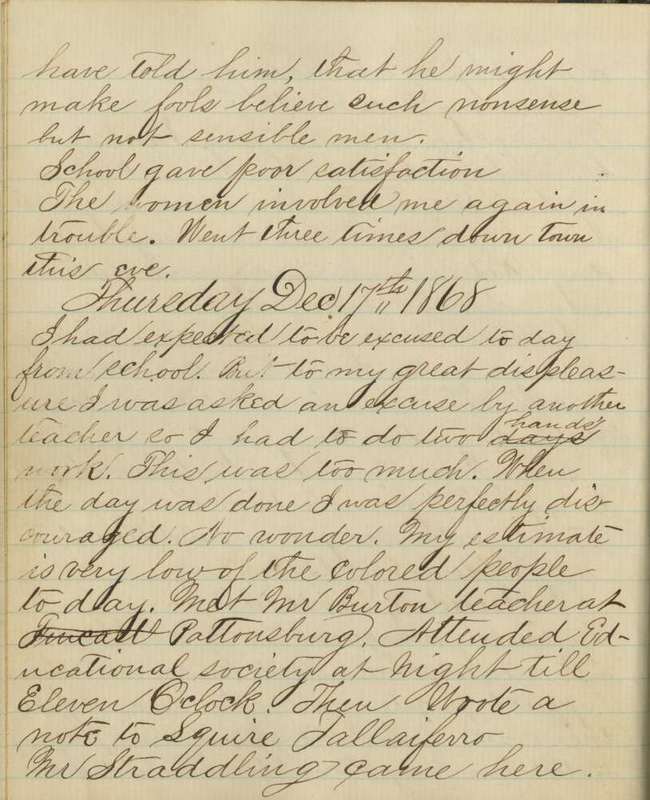 have told him, that he might
make fools believe such nonsense
but not sensible men.
School gave poor satisfaction
The women involved me again in
trouble. Went three times down town
this eve.
Thursday Dec 17th 1868
I had expected to be excused to day
from school. But to my great displeas-
ure I was asked an excuse by another
teacher so I had to do two days hands
work. This was too much. When
the day was done I was perfectly dis
couraged. No wonder. My estimate
is very low of the colored people
to day. Met Mr Burton teacher at
Fincastl Pattonsburg. Attended Ed-
ucational society at night till
Eleven O'clock. Then Wrote a
note to Squire Tallaiferro
Mr Straddling came here.